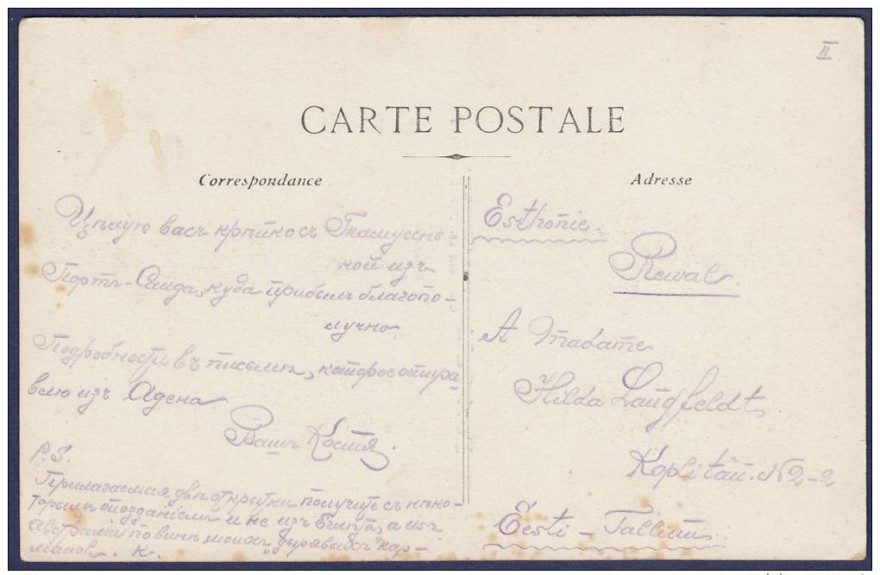 II
CARTE POSTALE
Correspondance
Цѣлую васъ крѣпко съ
ной изъ
Портъ-Саида, куда прибылъ благопо-
лучно.
Подробности въ письмѣ, которое отпра-
влю изъ Адена.
Вашъ Костя.
P.S.
Прилагаемыя двѣ открытки получите съ нѣко-
торымъ опозданіемъ и не изъ Египта, а изъ
Австраліи по винѣ моихъ „дыравыхъ" кар-
мановъ. К.
Adresse
Esthonie.
Reval.
A Madame
Hilda Langfeldt
Kopli tän. № 2-2
Eesti - Tallinn